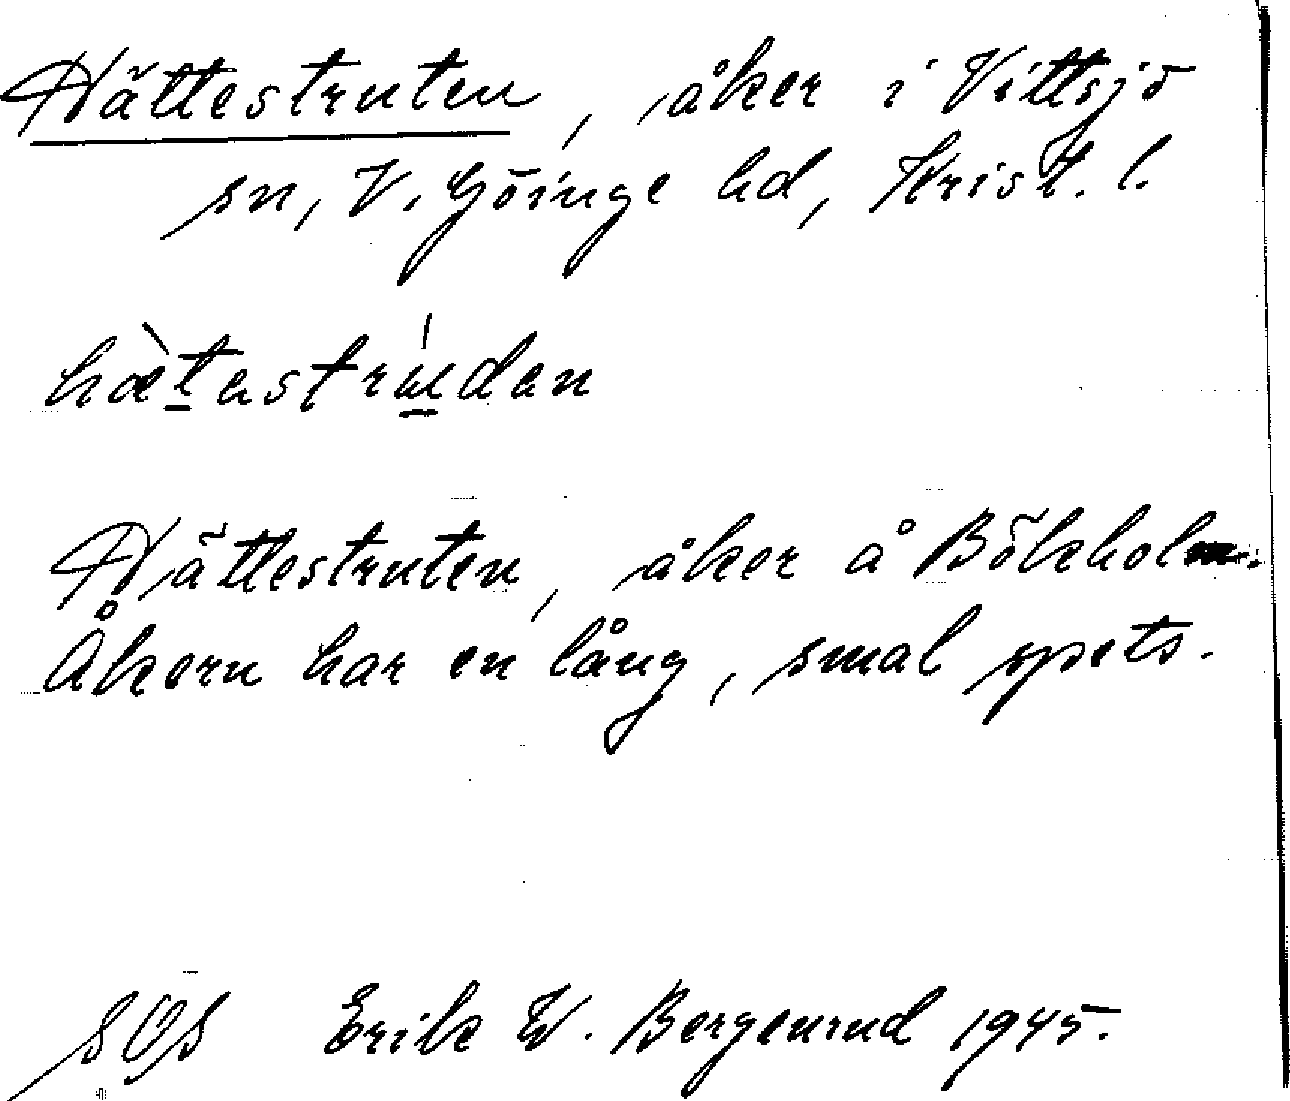 Hättestruten, åker i Vittsjö
sn, V. Göinge hd, Krist. l.
hæ̀tastrúdan
Hättestruten, åker å Bökholm.
Åkern har en lång, smal spets.
SOS Erik W. Bergenrud 1945.